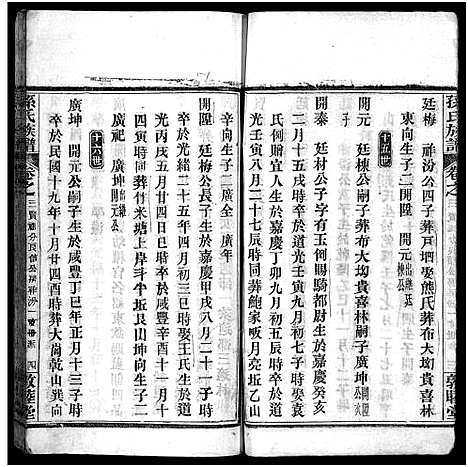 孫氏族譜
卷之三
敦睦堂
廷梅　祥汾公四子葬戸垇娶熊氏葬布大㘭貴喜林
東向生子二開陞　開元
十五世
開元　廷棟公嗣子葬布大㘭貴喜林嗣子廣坤
開泰　廷材公子字有玉例賜騎都尉生於嘉慶癸亥
二月十五戌時歿於道光壬寅九月初七日時娶袁
氏例贈宜人生於嘉慶丁卯九月初九日戌時歿於道
光壬
寅八月二十七辰時同葬鮑家畈月亮坵乙山
辛向生子二廣全　廣年
開陞　廷梅公長子生於嘉慶甲戌八月二十一子時
卒於光
二十五年四月初三巳時娶王氏生於道
光丙戌十二月二十五辰時卒於咸豐辛酉十一月十
四寅時同葬竹米塘上岸斗牛坵艮山坤向生子二
廣祀　廣坤
十六世
廣坤　開元公嗣子生於咸豐丁巳年正月十三子時
卒於民國十九年十月廿四酉時葬大崗乾山巽向
孫氏族譜
卷之三
敦睦堂